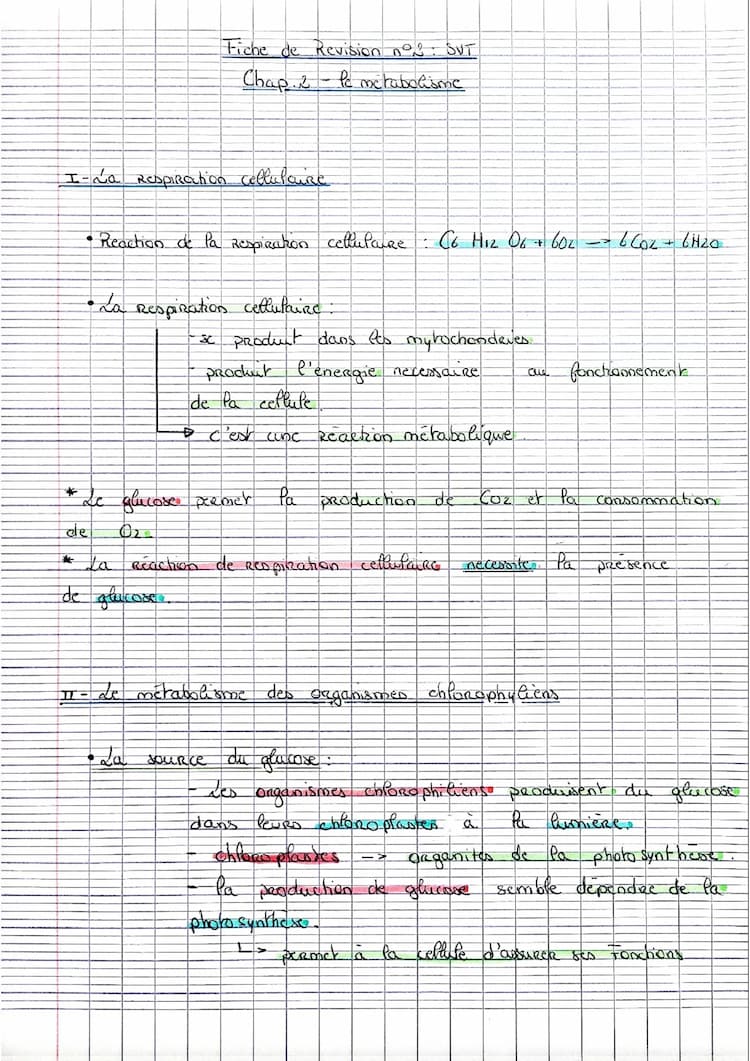 Fiche de Revision n°2 : SVT
Chap.2 - le métabolisme
I - La respiration cellulaire
• Reaction de la respiration cellulaire : C6 H12 O6 + 6O2 --> 6CO2 + 6H2O
• La respiration cellulaire :
- se produit dans les mytochondries
- produit l'énergie necessaire au fonctionnement
de la cellule.
→ c'est une réaction métabolique.
* Le glucose permet la production de CO2 et la consommation
de O2.
* La réaction de respiration cellulaire necessite la présence
de glucose.
II - Le métabolisme des organismes chlorophyliens
• La source du glucose :
- Les organismes chlorophiliens produisent du glucose
dans leurs chloroplastes à la lumière.
- chloroplastes --> organites de la photosynthèse.
- la production de glucose semble dépendre de la
photosynthèse.
↳ permet à la cellule d'assurer ses fonctions